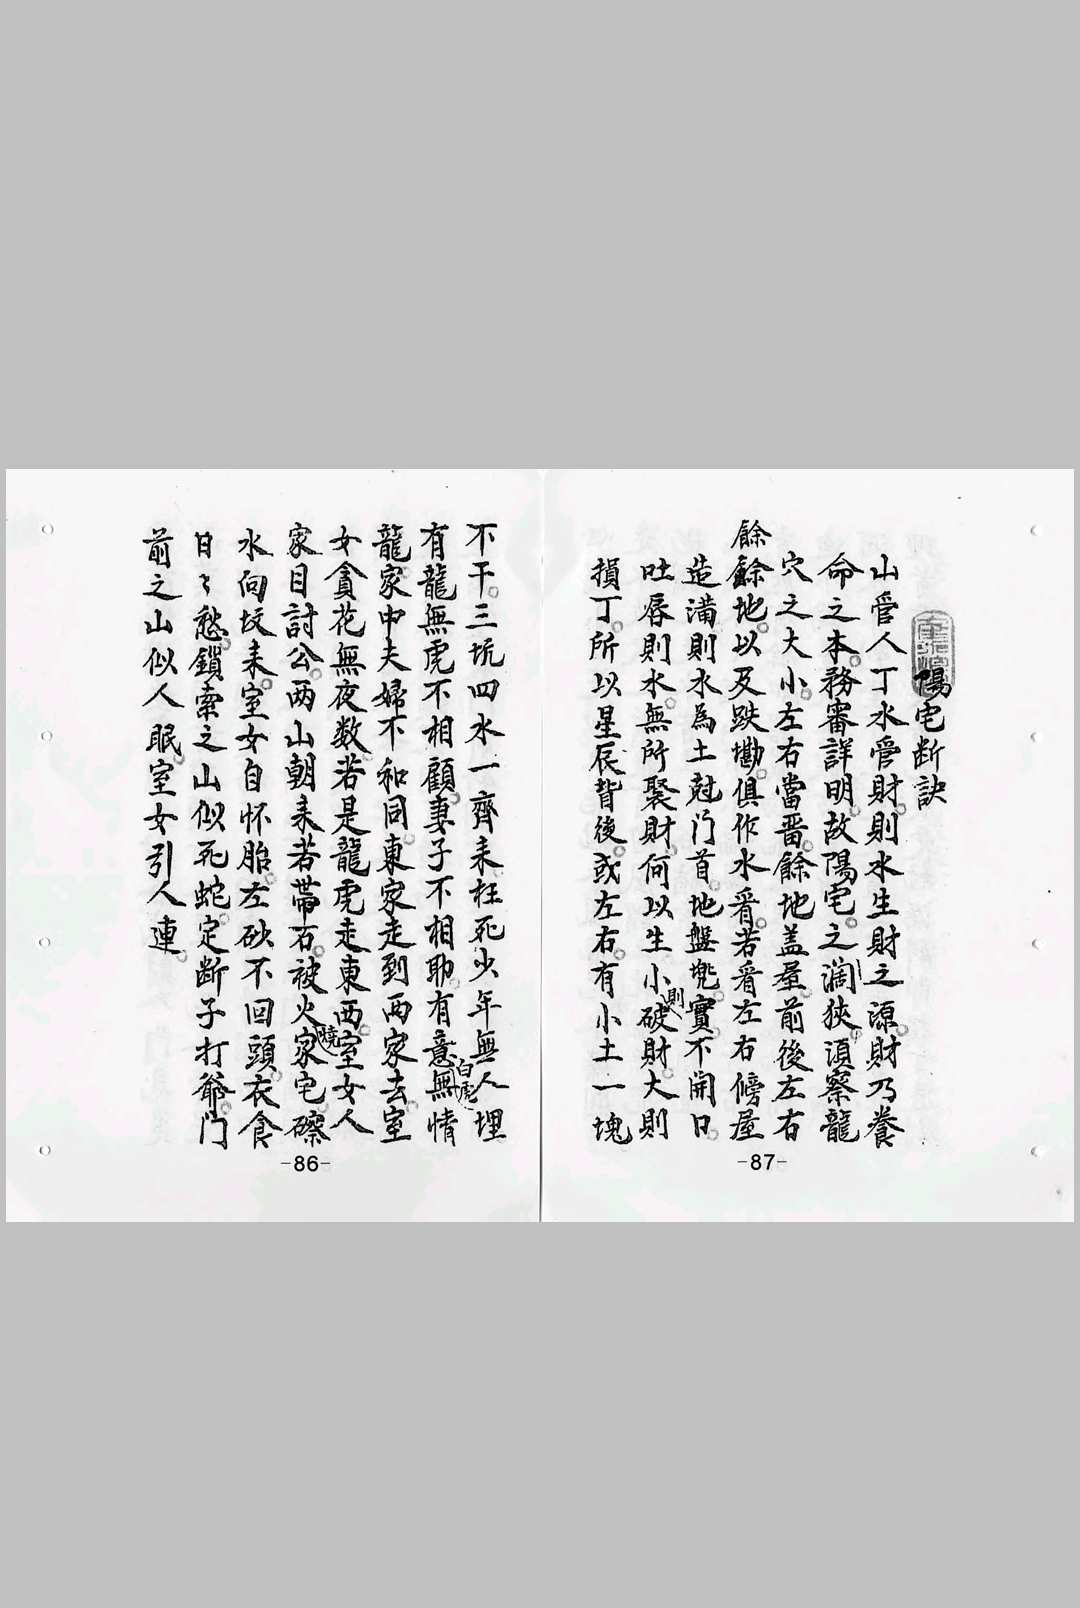 不干三坑四水一齊来枉死少年無人埋
有龍無虎不相顧妻子不相助有意無情
白虎
龍家中夫婦不和同東家走到西家去室
女貪花無夜数若是龍虎走東西室女人
家目討公两山朝来若帶石被火家宅磜
燒
水向坟来室女自怀胎左砂不回頭衣食
日々愁鎖索之山似死蛇定断子打爺门
前之山似人眠室女引人連
-86-
陽宅断訣
山管人丁水管財則水生財之源財乃養
命之本務審詳明故陽宅之濶狹須察龍
穴之大小左右當畱餘地盖屋前後左右
餘
餘地以及跌墈俱作水看若看左右傍屋
造滿則水為土尅门首地盤兠實不開日
吐唇則水無所聚財何以生小破財大則
則
損丁所以星辰背後或左右有小土一塊
-87-